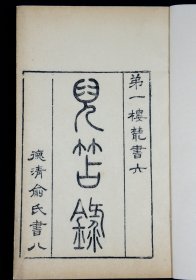 第一樓叢書六
兒笘錄
德清俞氏書八